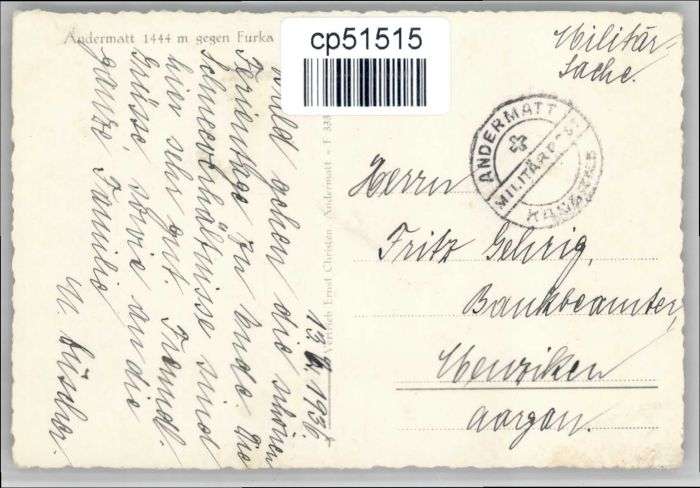 Andermatt 1444 m gegen Furka
cp51515
Militär-
sache.
ANDERMATT
MILITÄRPOST
Herrn
Fritz Gehrig,
Bankbeamter,
Menziken
Aargau.
Vertrieb Ernst Christen, Andermatt - F 333
13. 1936
Bald gehen die schönen
Ferientage zu Ende. Die
Schneeverhältnisse sind
hier sehr gut. Freundl.
Grüsse sowie an die
ganze Familie